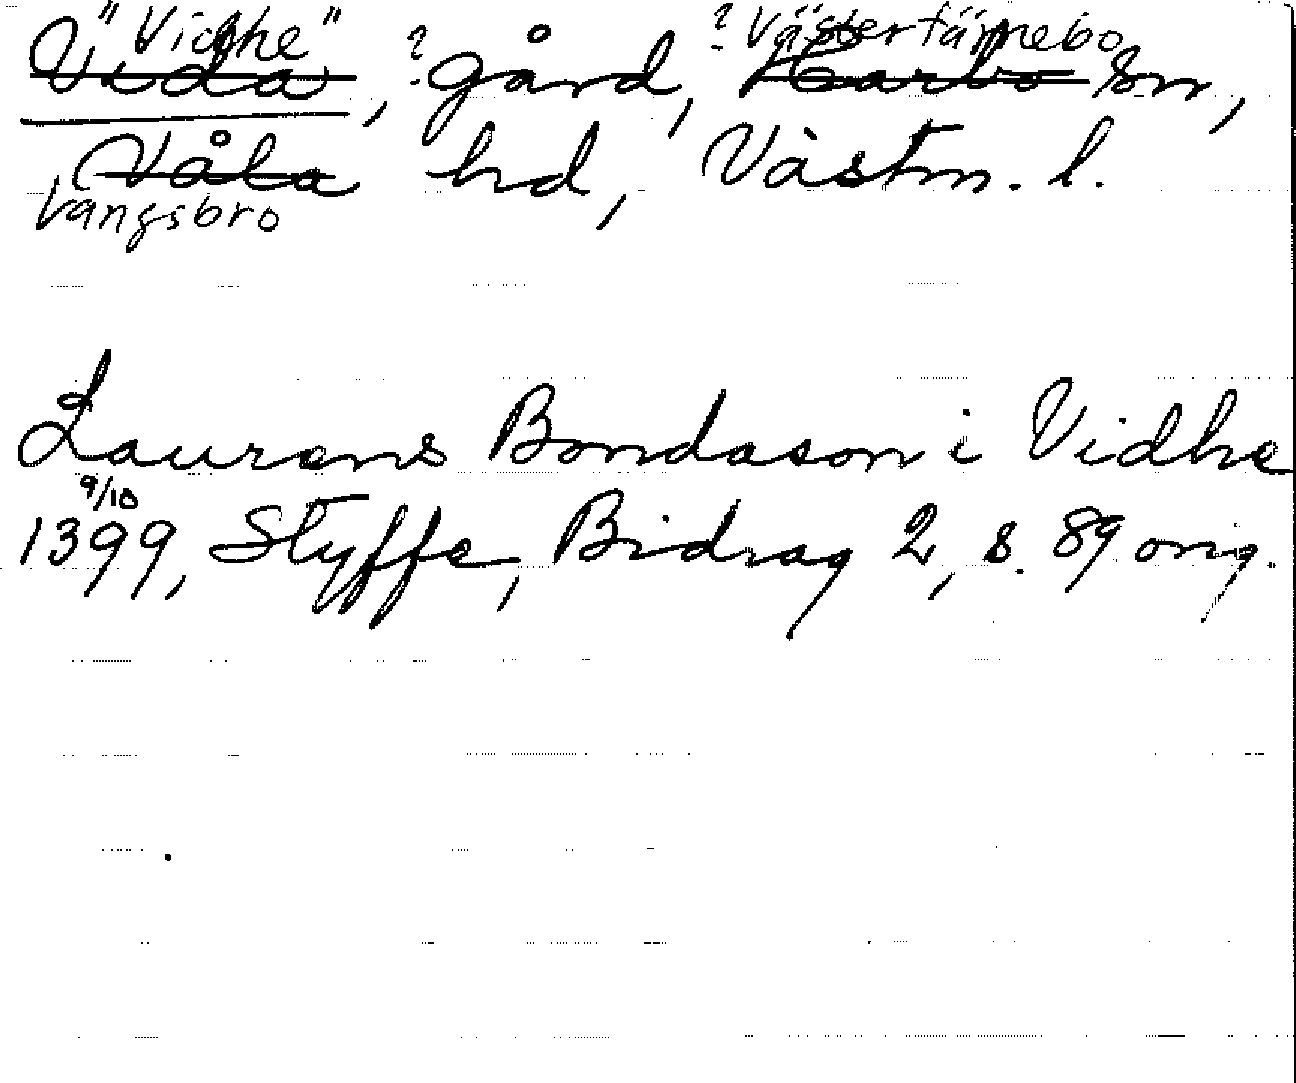 "Vidhe" ? Västerfärnebo
Vida, ? gård, Harbo sn,
Våla hd, Västm. l.
Vangsbro
Laurens Bondason i Vidhe
9/10
1399, Styffe, Bidrag 2, s. 89 orig.